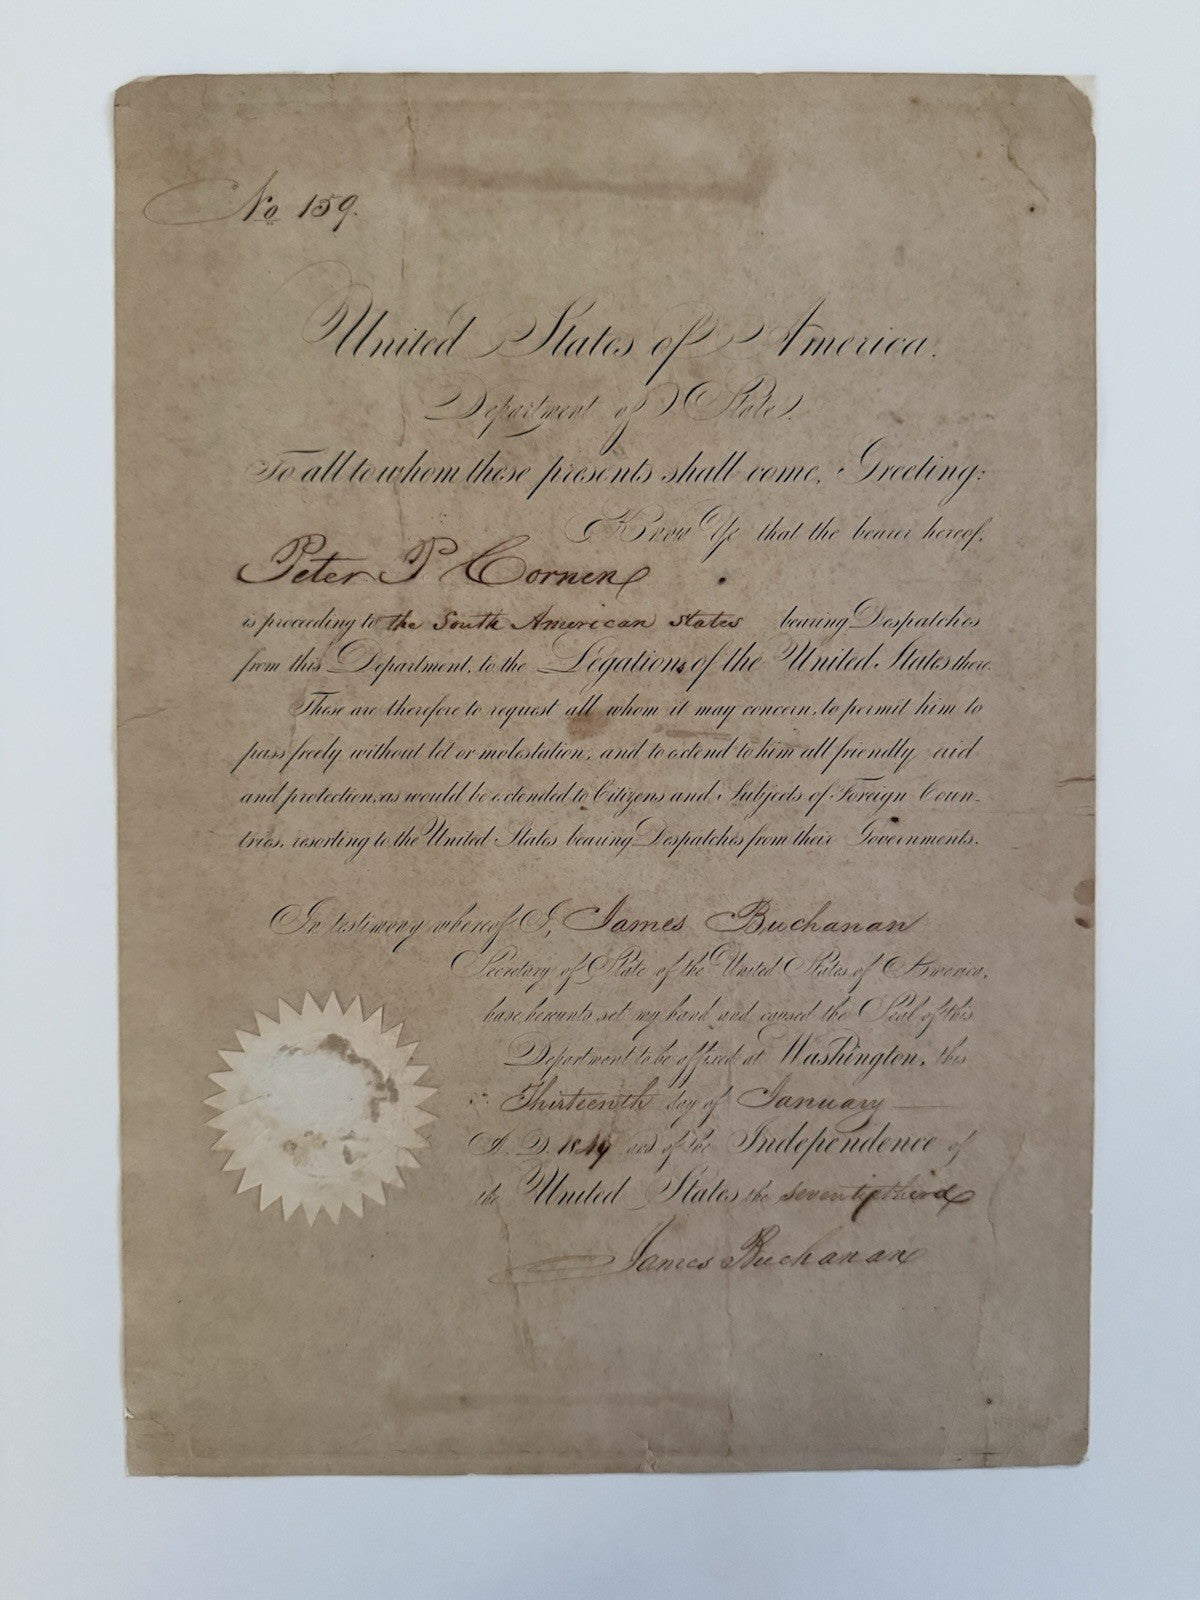 No 159.
United States of America.
Department of State.
To all to whom these presents shall come, Greeting:
Know Ye that the bearer hereof,
Peter P Cornen
is proceeding to the South American States bearing Despatches
from this Department, to the Legations of the United States there.
These are therefore to request all whom it may concern, to permit him to
pass freely without let or molestation, and to extend to him all friendly aid
and protection, as would be extended to Citizens and Subjects of Foreign Coun-
tries, resorting to the United States bearing Despatches from their Governments.
In testimony whereof I, James Buchanan
Secretary of State of the United States of America,
have hereunto set my hand and caused the Seal of this
Department to be affixed at Washington, this
Thirteenth day of January
A. D. 1849 and of the Independence of
the United States the seventythird
James Buchanan